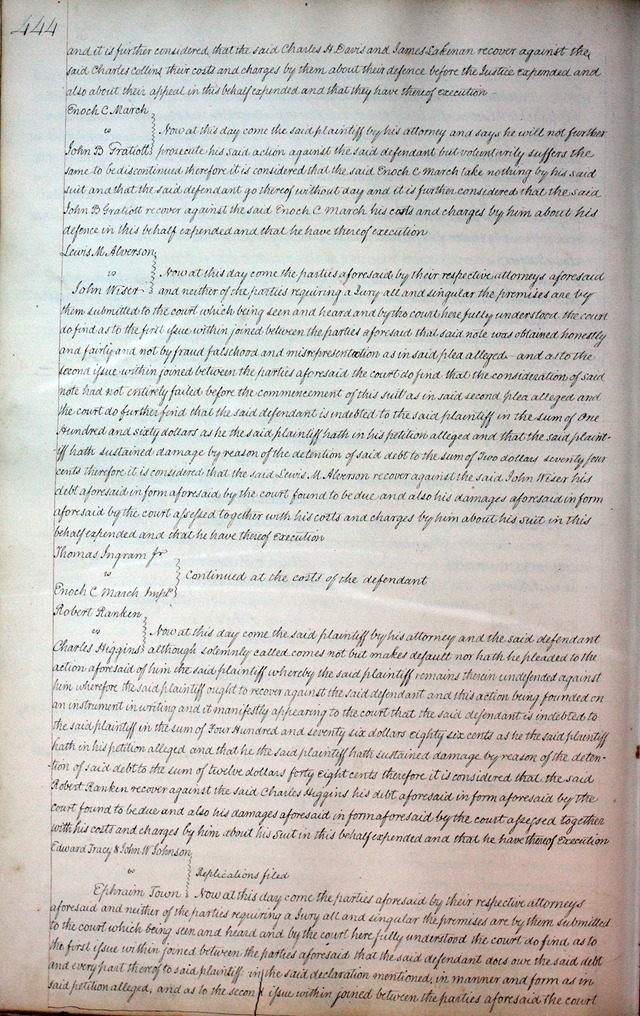 444
and it is further considered that the said Charles H Davis and James Lakeman recover against the
said Charles collins their costs and charges by them about their defence before the Justice expended and
also about their appeal in this behalf expended and that they have thereof execution
Enoch C March
vs Now at this day come the said plaintiff by his attorney and says he will not further
John B Gratiott prosecute his said action against the said defendant but voluntarily suffers the
same to be discontinued therefore it is considered that the said Enoch C March take nothing by his said
suit and that the said defendant go thereof without day and it is further considered that the said
John B Gratiott recover against the said Enoch C March his costs and charges by him about his
defence in this behalf expended and that he have thereof execution
Lewis M Alverson
vs Now at this day come the parties aforesaid by their respective attorneys aforesaid
John Wiser and neither of the parties requiring a Jury all and singular the premises are by
them submitted to the court which being seen and heard and by the court here fully understood the court
do find as to the first issue within joined between the parties aforesaid that said note was obtained honestly
and fairly and not by fraud falsehood and misrepresentation as in said plea alleged - and as to the
second issue within joined between the parties aforesaid the court do find that the consideration of said
note had not entirely failed before the commencement of this suit as in said second plea alleged and
the court do further find that the said defendant is indebted to the said plaintiff in the sum of One
Hundred and sixty dollars as he the said plaintiff hath in his petition alleged and that the said plaint-
iff hath sustained damage by reason of the detention of said debt to the sum of Two dollars seventy four
cents therefore it is considered that the said Lewis M Alverson recover against the said John Wiser his
debt aforesaid in form aforesaid by the court found to be due and also his damages aforesaid in form
aforesaid by the court assessed together with his costs and charges by him about his suit in this
behalf expended and that he have thereof Execution
Thomas Ingram Jr
vs Continued at the costs of the defendant
Enoch C March Impd
Robert Ranken
vs Now at this day come the said plaintiff by his attorney and the said defendant
Charles Higgins although solemnly called comes not but makes default nor hath he pleaded to the
action aforesaid of him the said plaintiff whereby the said plaintiff remains therein undefended against
him wherefore the said plaintiff ought to recover against the said defendant and this action being founded on
an instrument in writing and it manifestly appearing to the court that the said defendant is indebted to
the said plaintiff in the sum of Four Hundred and seventy six dollars Eighty six cents as he the said plaintiff
hath in his petition alleged and that he the said plaintiff hath sustained damage by reason of the deten-
tion of said debt to the sum of twelve dollars forty Eight cents therefore it is considered that the said
Robert Ranken recover against the said Charles Higgins his debt aforesaid in form aforesaid by the
court found to be due and also his damages aforesaid in form aforesaid by the court assessed together
with his costs and charges by him about his suit in this behalf expended and that he have thereof Execution
Edward Tracy & John W Johnson
vs Replications filed
Ephraim Town Now at this day come the parties aforesaid by their respective attorneys
aforesaid and neither of the parties requiring a Jury all and singular the premises are by them submitted
to the court which being seen and heard and by the court here fully understood the court do find, as to
the first issue within joined between the parties aforesaid that the said defendant does owe the said debt
and every part thereof to said plaintiff in the said declaration mentioned, in manner and form as in
said petition alleged, and as to the second issue within joined between the parties aforesaid the court